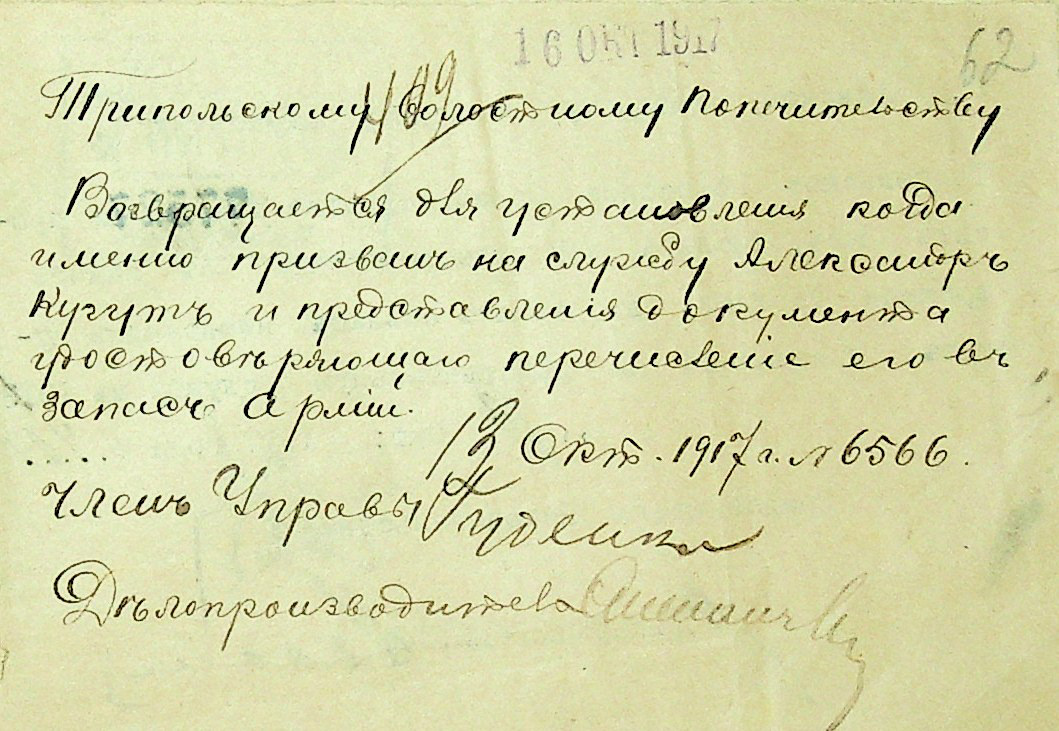 16 ОКТ 1917
62
Трипольскому Волостному Попечительству
Возвращается для установленія когда
именно призванъ на службу Александръ
Кугутъ и представленія документа
удостовѣряющаго перечисленіе его въ
запасъ Арміи.
13 Окт. 1917 г. № 6566.
Членъ Управы Руденко
Дѣлопроизводитель